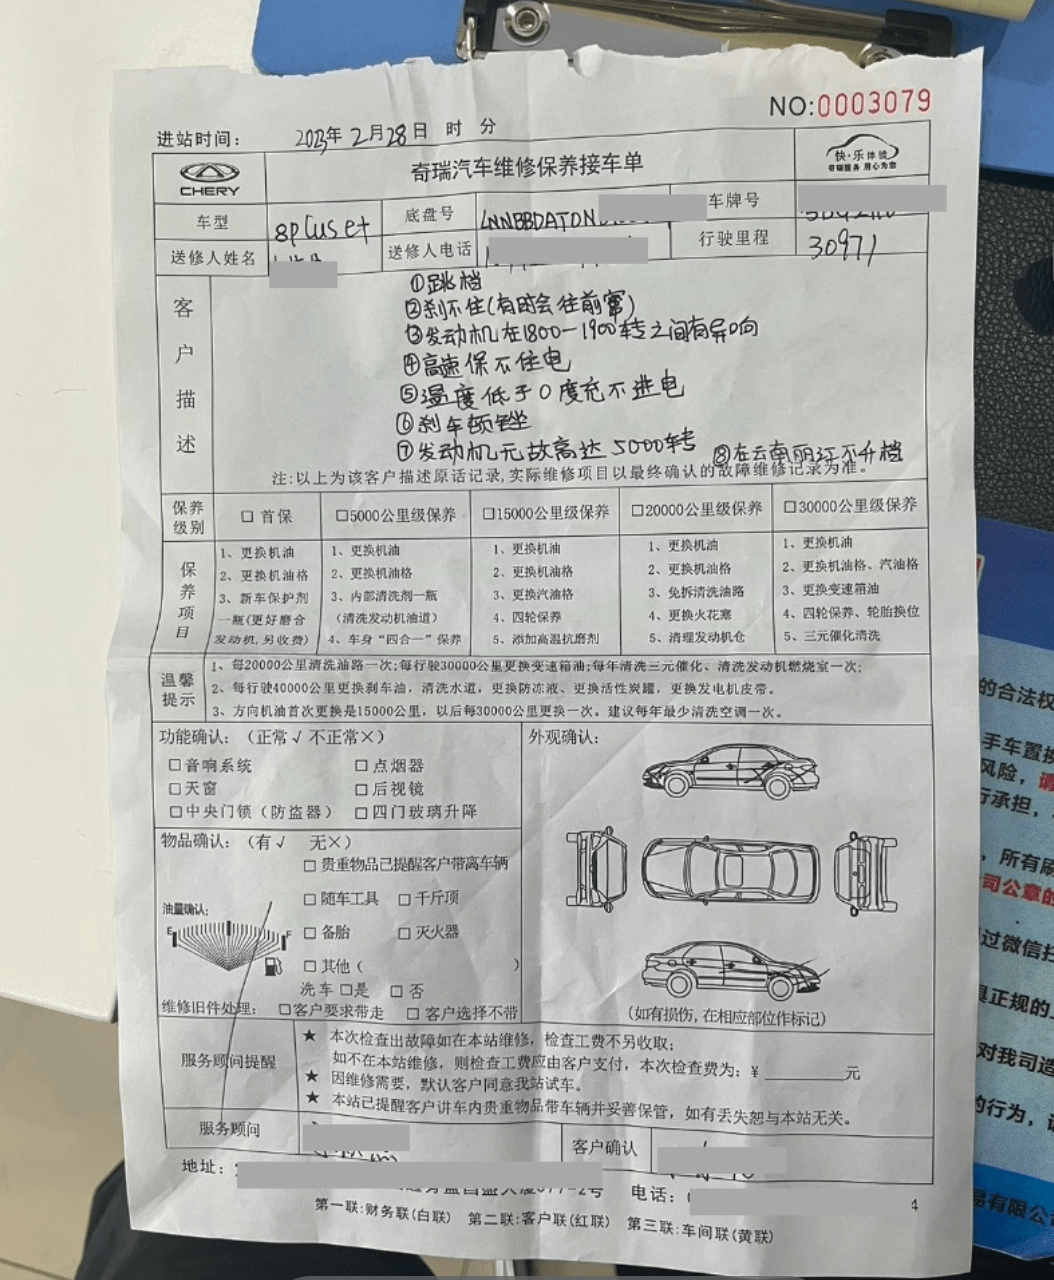 NO:0003079
进站时间: 2023年2月28日 时 分
CHERY
奇瑞汽车维修保养接车单
快·乐体验
奇瑞服务 用心为您
车型 8plus e+ 底盘号 LNNBBDATDN 车牌号
送修人姓名 送修人电话 行驶里程 30971
客户描述
①跳档
②刹不住(有时会往前窜)
③发动机在1800-1900转之间有异响
④高速保不住电
⑤温度低于0度充不进电
⑥刹车顿挫
⑦发动机无故高达5000转 ⑧在云南丽江不升档
注:以上为该客户描述原话记录,实际维修项目以最终确认的故障维修记录为准。
保养级别 □首保 □5000公里级保养 □15000公里级保养 □20000公里级保养 □30000公里级保养
保养项目
1、更换机油 1、更换机油 1、更换机油 1、更换机油 1、更换机油
2、更换机油格 2、更换机油格 2、更换机油格 2、更换机油格 2、更换机油格、汽油格
3、新车保护剂 3、内部清洗剂一瓶 3、更换汽油格 3、免拆清洗油路 3、更换变速箱油
一瓶(更好磨合 (清洗发动机油道) 4、四轮保养 4、更换火花塞 4、四轮保养、轮胎换位
发动机,另收费) 4、车身“四合一”保养 5、添加高温抗磨剂 5、清理发动机仓 5、三元催化清洗
温馨提示
1、每20000公里清洗油路一次;每行驶30000公里更换变速箱油;每年清洗三元催化、清洗发动机燃烧室一次;
2、每行驶40000公里更换刹车油，清洗水道，更换防冻液、更换活性炭罐，更换发电机皮带。
3、方向机油首次更换是15000公里，以后每30000公里更换一次。建议每年最少清洗空调一次。
功能确认: (正常√ 不正常×) 外观确认:
□音响系统 □点烟器
□天窗 □后视镜
□中央门锁（防盗器） □四门玻璃升降
物品确认: (有√ 无×)
□贵重物品已提醒客户带离车辆
□随车工具 □千斤顶
油量确认:
E F
□备胎 □灭火器
□其他( )
洗车 □是 □否
维修旧件处理: □客户要求带走 □客户选择不带
(如有损伤,在相应部位作标记)
服务顾问提醒
★ 本次检查出故障如在本站维修，检查工费不另收取;
如不在本站维修，则检查工费应由客户支付，本次检查费为: ¥ ________元
★ 因维修需要，默认客户同意我站试车。
★ 本站已提醒客户讲车内贵重物品带车辆并妥善保管，如有丢失恕与本站无关。
服务顾问 客户确认
地址: 77-2号 电话:
4
第一联:财务联(白联) 第二联:客户联(红联) 第三联:车间联(黄联)
的合法权
手车置换
风险，请
行承担，
，所有刷
司公章的
过微信扫
真正规的
对我司造
的行为，
易有限公司